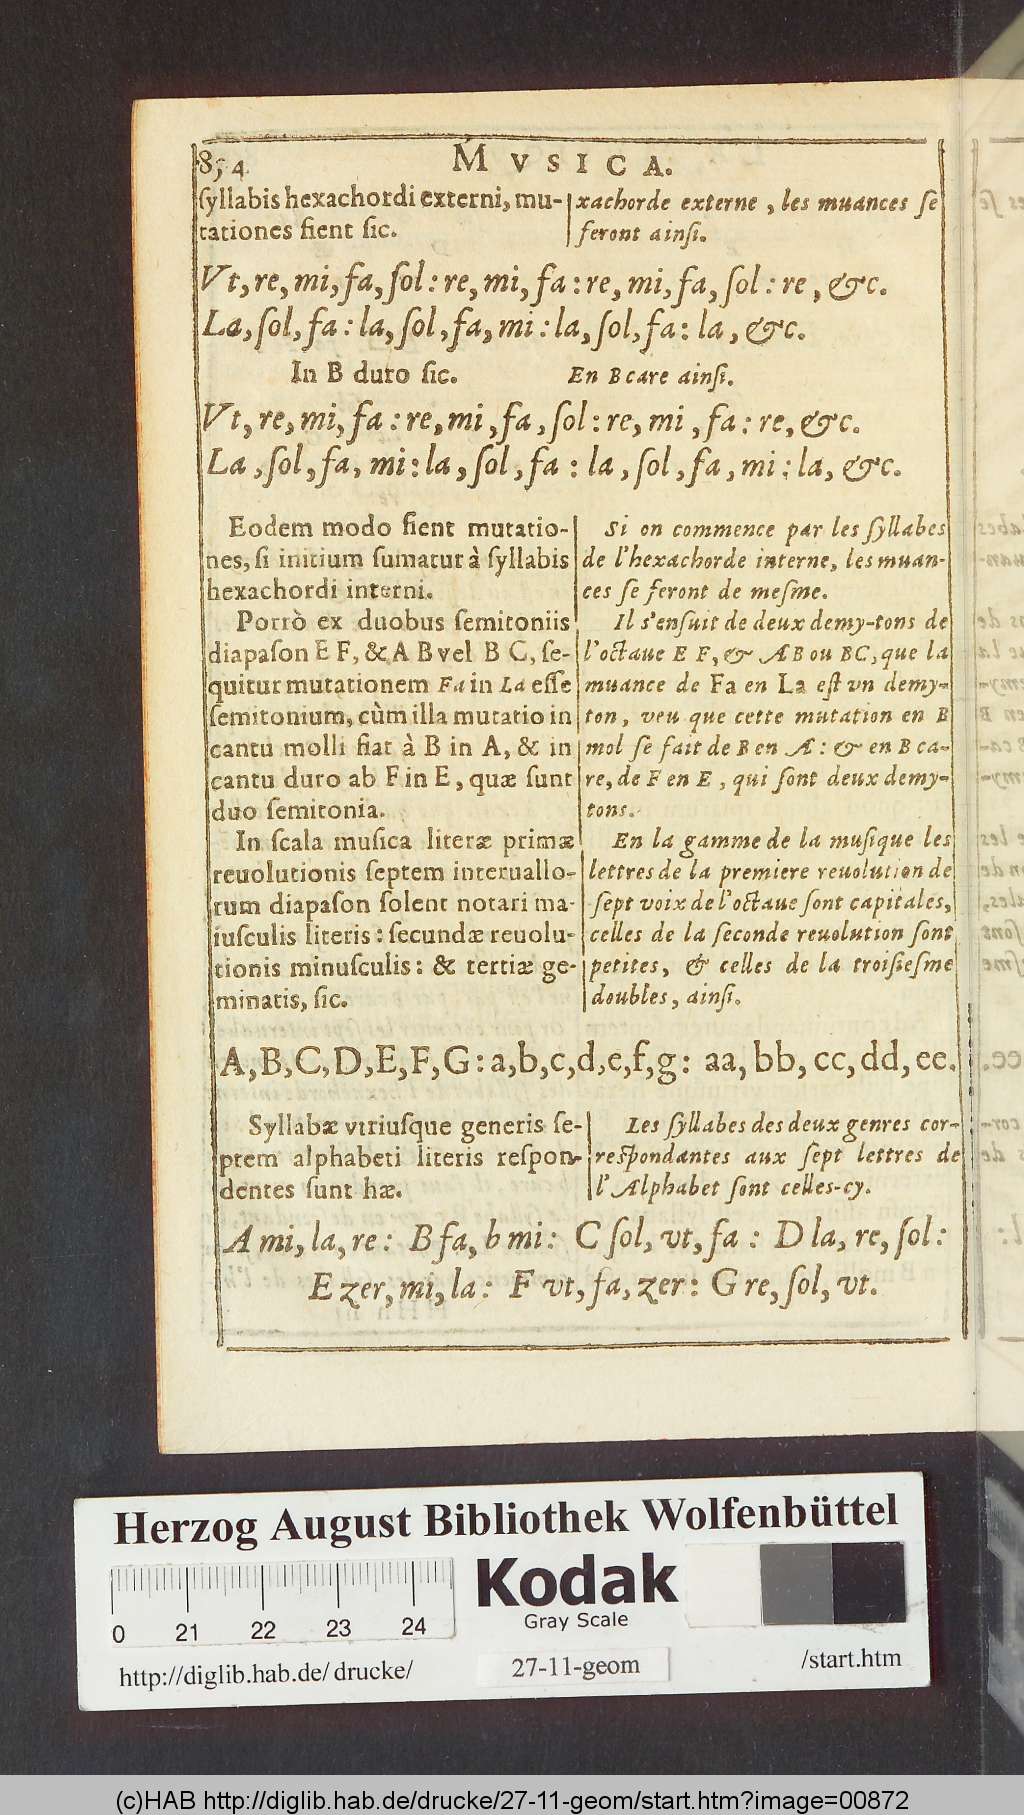 854 MVSICA.
ſyllabis hexachordi externi, mu-
tationes fient ſic.
xachorde externe, les muances ſe
feront ainſi.
Vt, re, mi, fa, ſol: re, mi, fa: re, mi, fa, ſol: re, &c.
La, ſol, fa: la, ſol, fa, mi: la, ſol, fa: la, &c.
In B duro ſic.
En B care ainſi.
Vt, re, mi, fa: re, mi, fa, ſol: re, mi, fa: re, &c.
La, ſol, fa, mi: la, ſol, fa: la, ſol, fa, mi: la, &c.
Eodem modo fient mutatio-
nes, ſi initium ſumatur à ſyllabis
hexachordi interni.
Porrò ex duobus ſemitoniis
diapaſon E F, & A B vel B C, ſe-
quitur mutationem Fa in La eſſe
ſemitonium, cùm illa mutatio in
cantu molli fiat à B in A, & in
cantu duro ab F in E, quæ ſunt
duo ſemitonia.
In ſcala muſica literæ primæ
reuolutionis ſeptem interuallo-
rum diapaſon ſolent notari ma-
iuſculis literis: ſecundæ reuolu-
tionis minuſculis: & tertiæ ge-
minatis, ſic.
Si on commence par les ſyllabes
de l'hexachorde interne, les muan-
ces ſe feront de meſme.
Il s'enſuit de deux demy-tons de
l'octaue E F, & A B ou BC, que la
muance de Fa en La eſt vn demy-
ton, veu que cette mutation en B
mol ſe fait de B en A: & en B ca-
re, de F en E, qui ſont deux demy-
tons.
En la gamme de la muſique les
lettres de la premiere reuolution de
ſept voix de l'octaue ſont capitales,
celles de la ſeconde reuolution ſont
petites, & celles de la troiſieſme
doubles, ainſi.
A, B, C, D, E, F, G: a, b, c, d, e, f, g: aa, bb, cc, dd, ee.
Syllabæ vtriuſque generis ſe-
ptem alphabeti literis reſpon-
dentes ſunt hæ.
Les ſyllabes des deux genres cor-
reſpondantes aux ſept lettres de
l'Alphabet ſont celles-cy.
A mi, la, re: B fa, b mi: C ſol, vt, fa: D la, re, ſol:
E zer, mi, la: F vt, fa, zer: G re, ſol, vt.
Herzog August Bibliothek Wolfenbüttel
Kodak
Gray Scale
0 21 22 23 24
http://diglib.hab.de/drucke/
27-11-geom
/start.htm
(c)HAB http://diglib.hab.de/drucke/27-11-geom/start.htm?image=00872